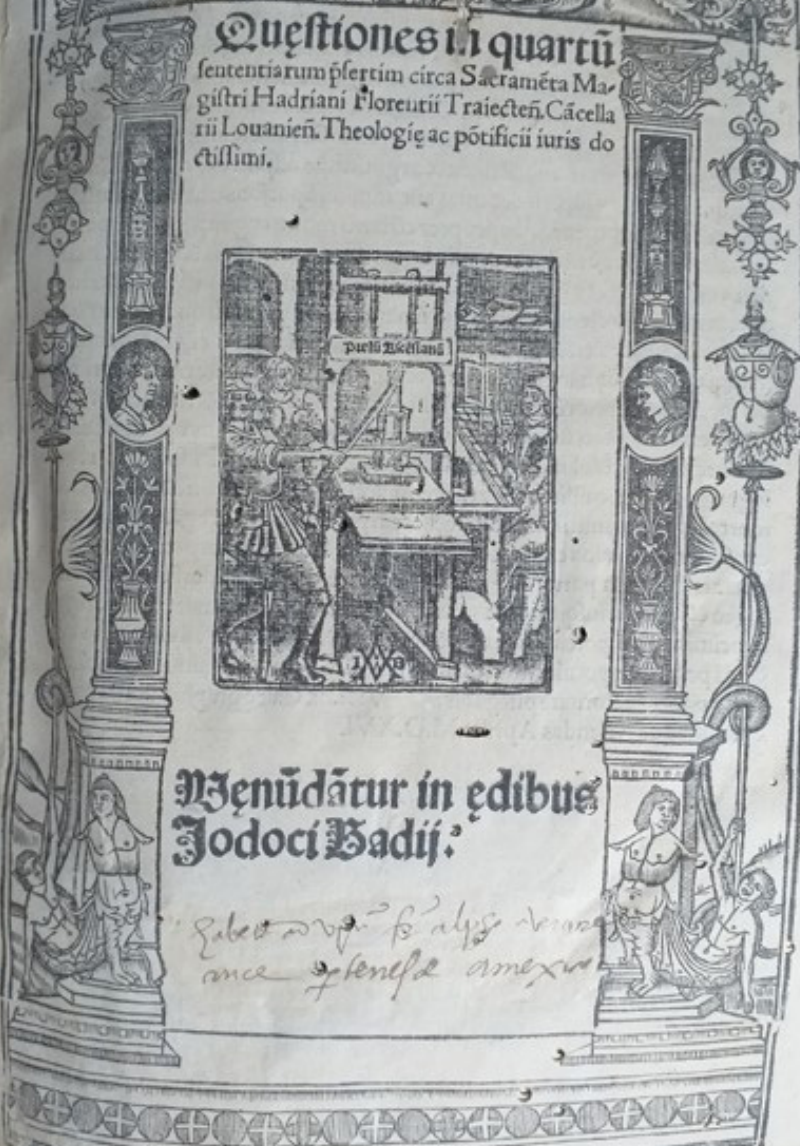 Quęstiones in quartū
sententiarum p̄sertim circa Sacramēta Ma-
gistri Hadriani Florentii Traiecteñ. Cācella
rii Louanieñ. Theologię ac pōtificii iuris do
ctissimi.
Prelū Ascēsianū
I B
Vęnūdātur in ędibus
Jodoci Badij.